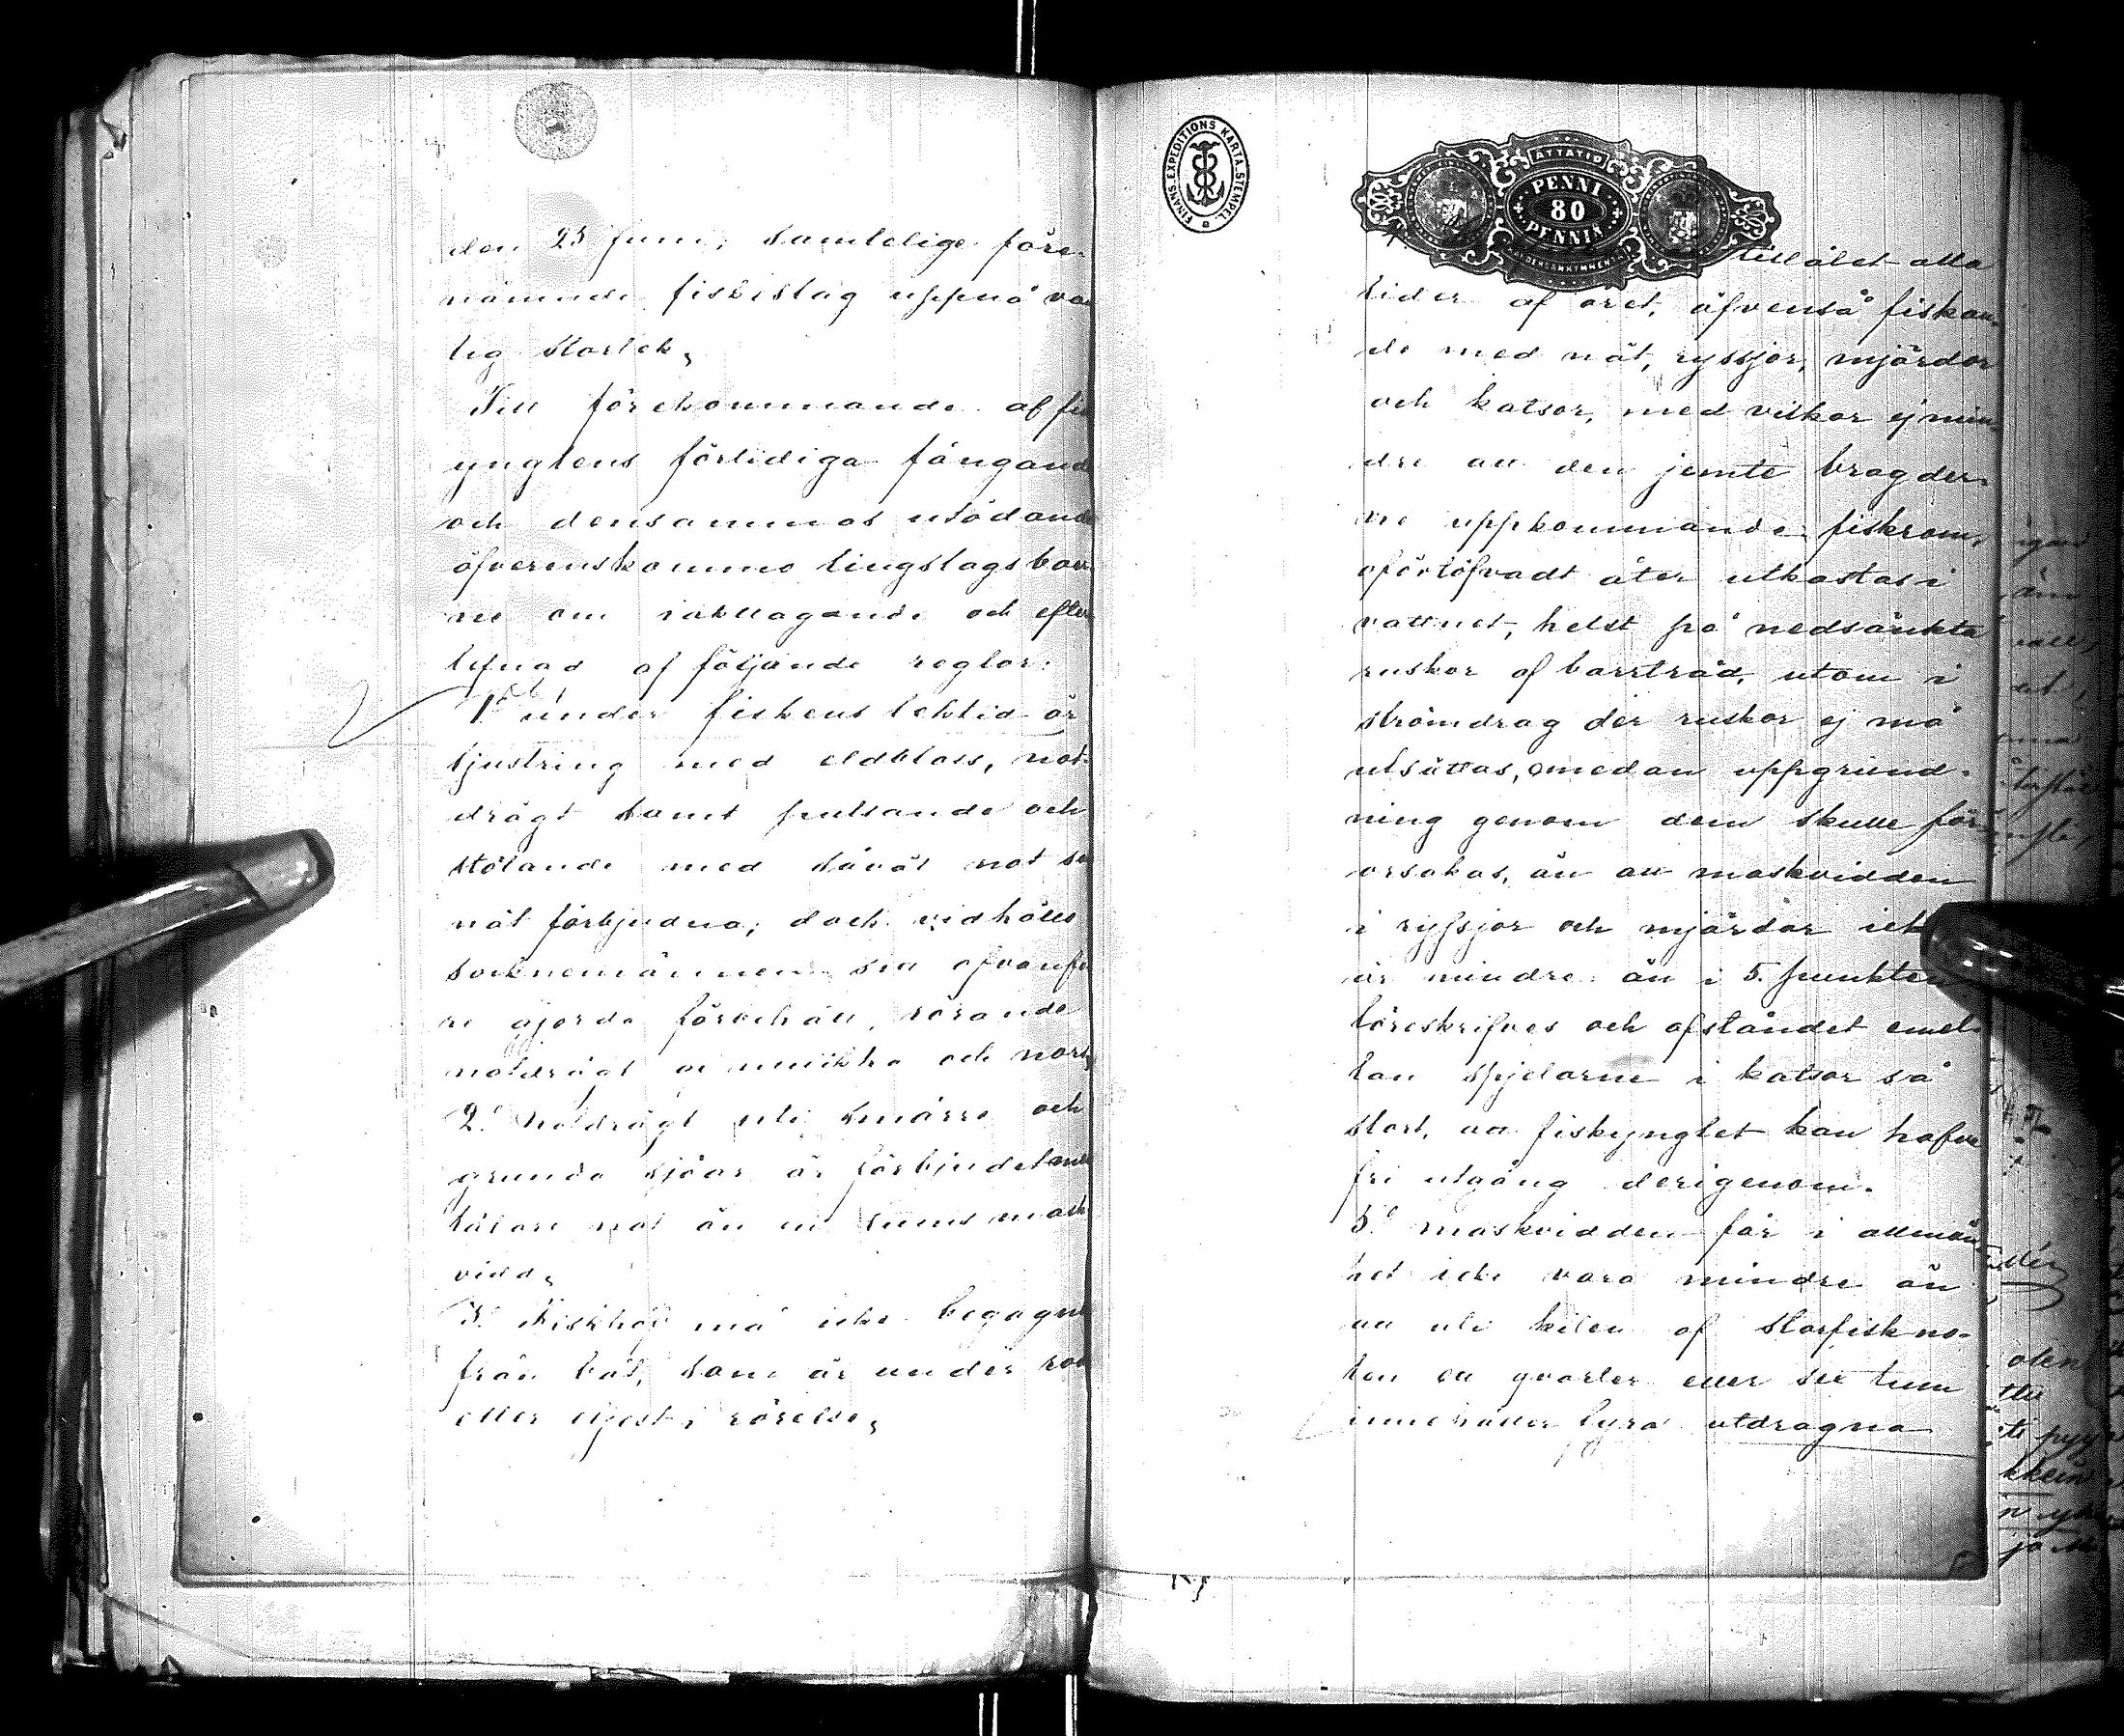 den 25 Juni, samtelige före-
nämnde fiskislag uppnå va
lig storlek,
Till förekommande af fi
ynglens förtidiga fångand
och densammas utödand
öfverenskommo tingslagsboer
ne om iakttagande och efter
lefnad af följande reglor:
1o under fiskens lektid är
ljustring med eldbloss, not-
drägt samt pulsande och
stötande med såväl not so
nät förbjudna; dock vidhöllo
socknemännen sin ofvanfö
re gjorda förbehåll, rörande
notdrägt å muikko och nors,
2o Notdrägt uti smärre och
grunda sjöar är förbjudet med
tätare not än en tums mask
vidd,
3o Fiskhåf må icke begagna
från båt, som är under rod
eller eljest i rörelse,
FINANS. EXPEDITIONS KARTA. STEMPEL
ÅTTATIO
PENNI
80
PENNIÄ
KAHDEKSANKYMMENTÄ
tillålet alla
tider af året, äfvenså fiskan-
de med nät, ryssjor, mjärdor
och katsor, med vilkor ej min
dre att den jemte bragder-
ne uppkommande fiskrom,
oförtöfvadt åter utkastas i
vattnet, helst på nedsänkta
ruskor af barrträd, utom i
strömdrag der ruskor ej må
utsättas, emedan uppgrund-
ning genom dem skulle för-
orsakas, än att maskvidden
i ryssjor och mjärdar ick
är mindre än i 5. punkten
föreskrifves och afståndet emel-
lan spjelarne i katsor så
stort, att fiskynglet kan hafva
fri utgång derigenom.
5o maskvidden får i allmän
het icke vara mindre än
att uti kilen af storfiskno-
ten en qvarter eller sex tum
innehåller fyra utdragna